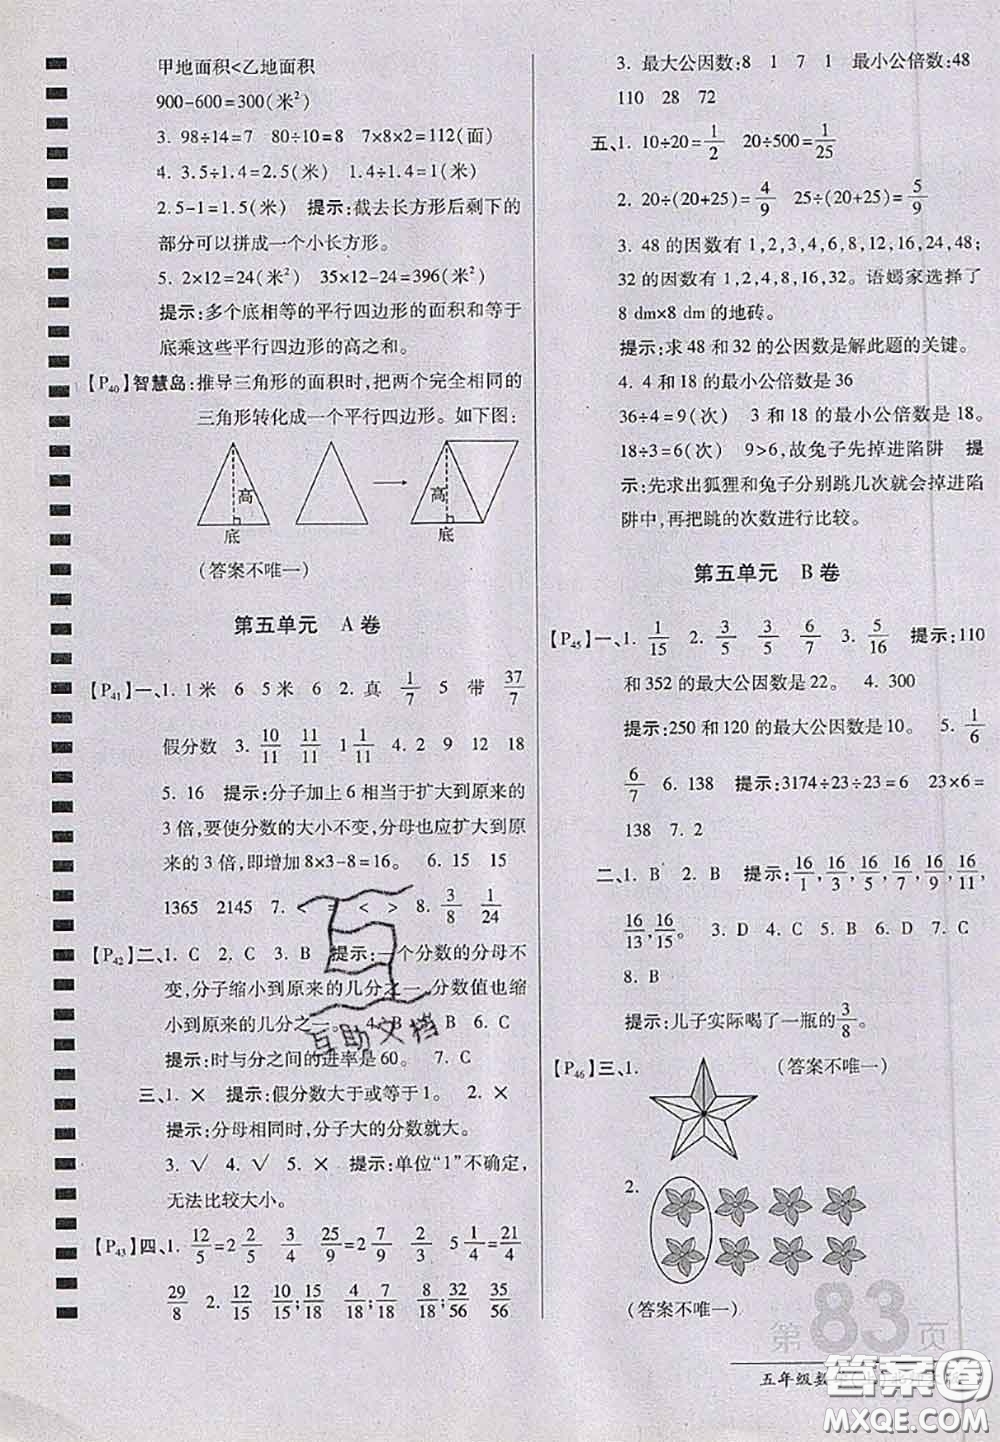 甲地面积<乙地面积
900-600=300(米²)
3. 98÷14=7 80÷10=8 7×8×2=112(面)
4. 3.5÷1.4=2.5(米) 1.4÷1.4=1(米)
2.5-1=1.5(米) 提示:截去长方形后剩下的
部分可以拼成一个小长方形。
5. 2×12=24(米²) 35×12-24=396(米²)
提示:多个底相等的平行四边形的面积和等于
底乘这些平行四边形的高之和。
【P40】智慧岛:推导三角形的面积时,把两个完全相同的
三角形转化成一个平行四边形。如下图:
高 高
底 底
(答案不唯一)
第五单元 A卷
【P41】一、1. 1米 6 5米 6 2. 真 1/7 5 带 37/7
假分数 3. 10/11 11/11 1 1/11 4. 2 9 12 18
5. 16 提示:分子加上6相当于扩大到原来的
3倍,要使分数的大小不变,分母也应扩大到原
来的3倍,即增加8×3-8=16。 6. 15 15
1365 2145 7. < = < > 8. 3/8 1/24
【P42】二、1. C 2. C 3. B 提示:一个分数的分母不
变,分子缩小到原来的几分之一,分数值也缩
小到原来的几分之一。 4. B 5. B 6. C
提示:时与分之间的进率是60。 7. C
三、1. × 提示:假分数大于或等于1。 2. ×
提示:分母相同时,分子大的分数就大。
3. √ 4. √ 5. × 提示:单位“1”不确定,
无法比较大小。
【P43】四、1. 12/5=2 2/5 3/4 25/9=2 7/9 2/3 5 1/4=21/4
29/8 2. 12/15 10/15;15/18 4/18;7/18 6/18;32/56 35/56
3. 最大公因数:8 1 7 1 最小公倍数:48
110 28 72
五、1. 10÷20=1/2 20÷500=1/25
2. 20÷(20+25)=4/9 25÷(20+25)=5/9
3. 48的因数有1,2,3,4,6,8,12,16,24,48;
32的因数有1,2,4,8,16,32。语嫣家选择了
8 dm×8 dm的地砖。
提示:求48和32的公因数是解此题的关键。
4. 4和18的最小公倍数是36
36÷4=9(次) 3和18的最小公倍数是18。
18÷3=6(次) 9>6,故兔子先掉进陷阱 提
示:先求出狐狸和兔子分别跳几次就会掉进陷
阱中,再把跳的次数进行比较。
第五单元 B卷
【P45】一、1. 1/15 2. 3/5 3/5 6/7 3. 5/16 提示:110
和352的最大公因数是22。 4. 300
提示:250和120的最大公因数是10。 5. 1/6
6/7 6. 138 提示:3174÷23÷23=6 23×6=
138 7. 2
二、1. B 2. B 提示:16/1,16/3,16/5,16/7,16/9,16/11,
16/13,16/15。 3. D 4. C 5. B 6. B 7. D
8. B
提示:儿子实际喝了一瓶的3/8。
【P46】三、1. (答案不唯一)
2.
(答案不唯一)
第83页
五年级数
互助文档
答案卷
MXQE.COM